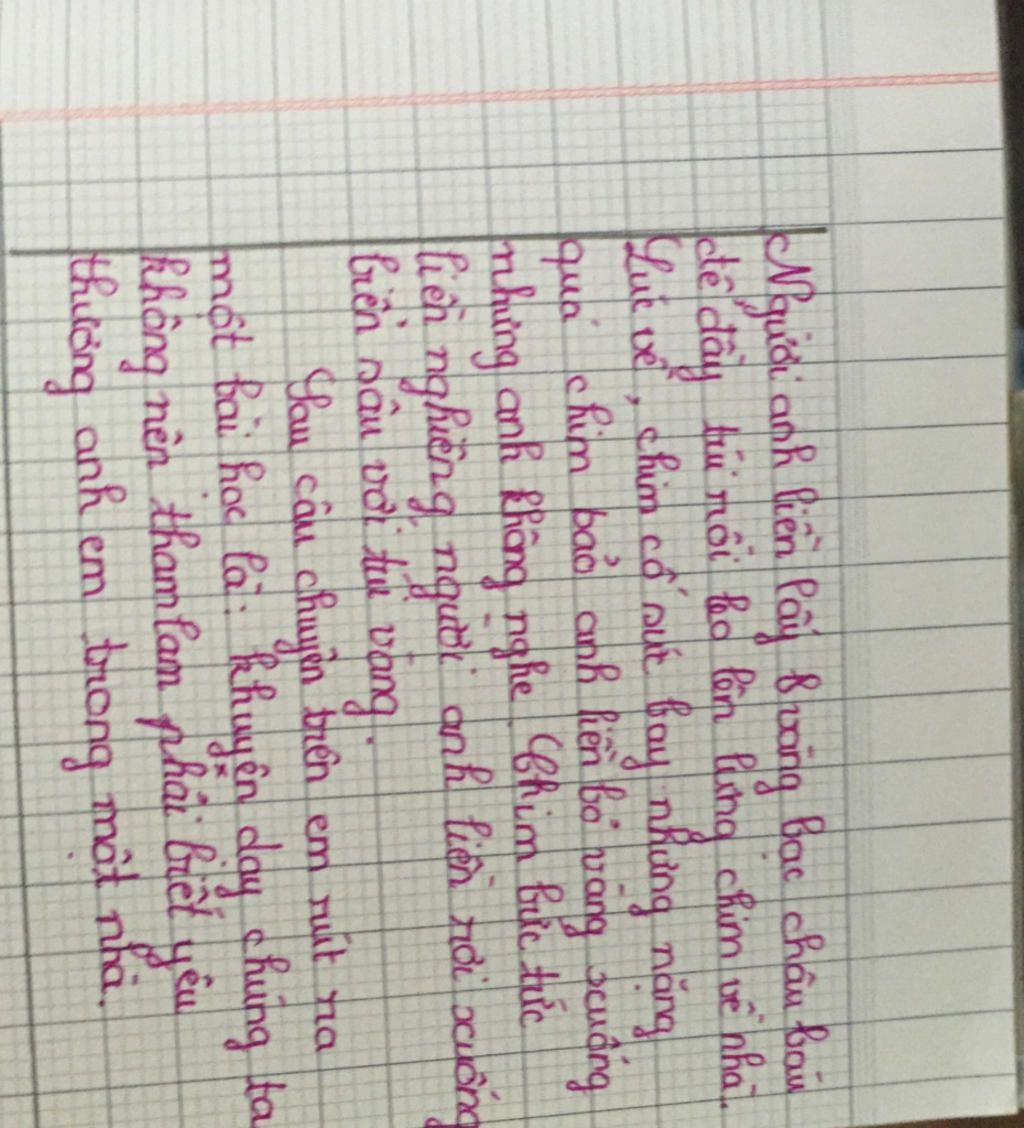 Người anh liền lấy vàng bạc châu báu
để đầy túi rồi leo lên lưng chim về nhà.
Lúc về, chim cố sức bay nhưng nặng
quá chim bảo anh liền bỏ vàng xuống
nhưng anh không nghe. Chim bực tức
liền nghiêng người anh liền rơi xuống
biển sâu với túi vàng.
Sau câu chuyện trên em rút ra
một bài học là: khuyên dạy chúng ta
không nên tham lam phải biết yêu
thương anh em trong một nhà.